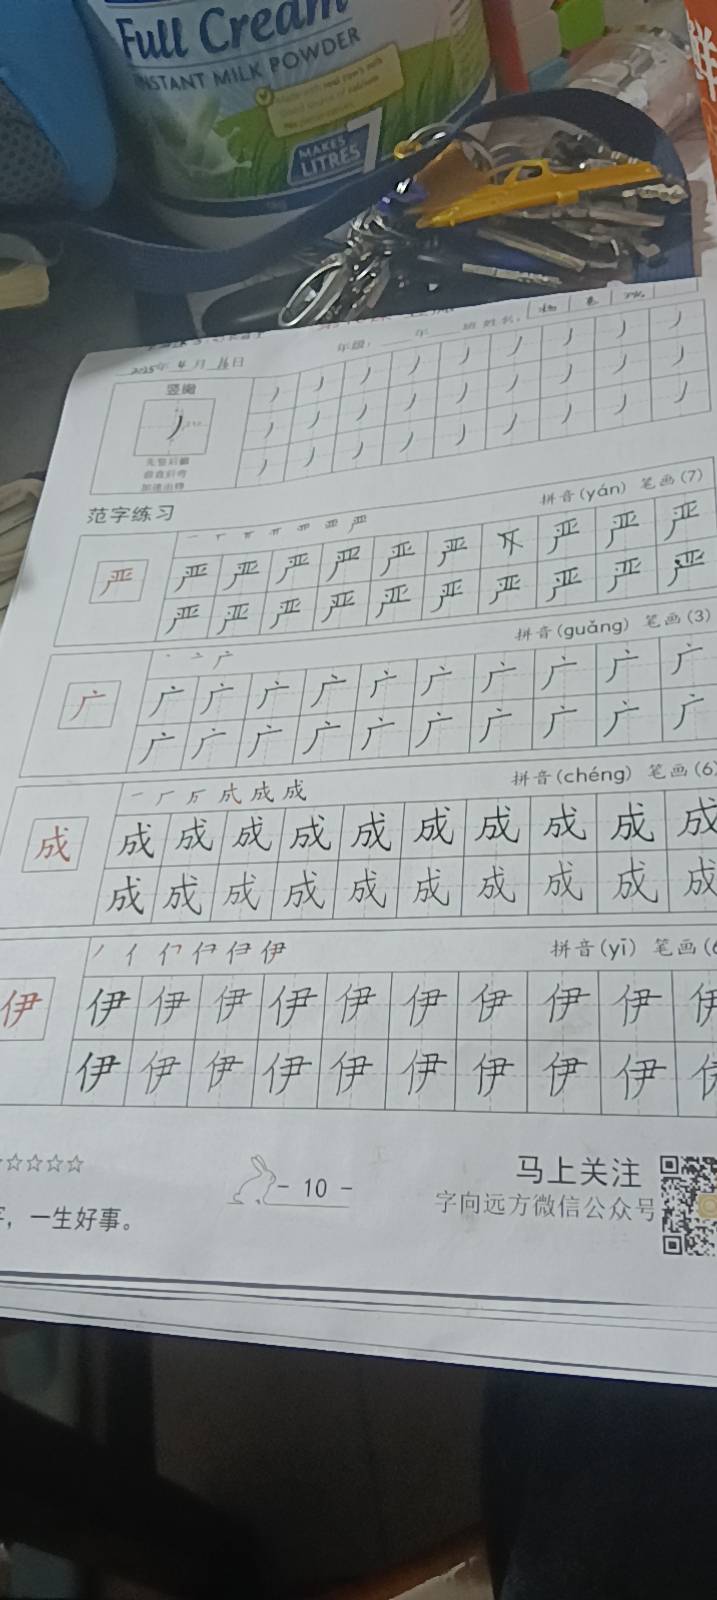 Full Cream
INSTANT MILK POWDER
MAKES 7
LITRES
鲜
2025年 4 月 16 日 年级: 年 班 姓名:
竖撇
丿
丿 丿 丿 丿 丿 丿 丿 丿 丿
丿 丿 丿 丿 丿 丿 丿 丿 丿
丿 丿 丿 丿 丿 丿 丿 丿 丿
范字练习
拼音(yán) 笔画(7)
严
严 严 严 严 严 严 严 严 严
严 严 严 严 严 严 严 严 严 严 严
拼音(guǎng) 笔画(3)
广
广 广 广 广 广 广 广 广 广 广
广 广 广 广 广 广 广 广 广 广
拼音(chéng) 笔画(6)
成
成 成 成 成 成 成 成 成 成 成
成 成 成 成 成 成 成 成 成 成
拼音(yī) 笔画(6
伊
伊 伊 伊 伊 伊 伊 伊 伊 伊 伊
伊 伊 伊 伊 伊 伊 伊 伊 伊
☆☆☆☆
- 10 -
马上关注
字向远方微信公众号
字，一生好事。